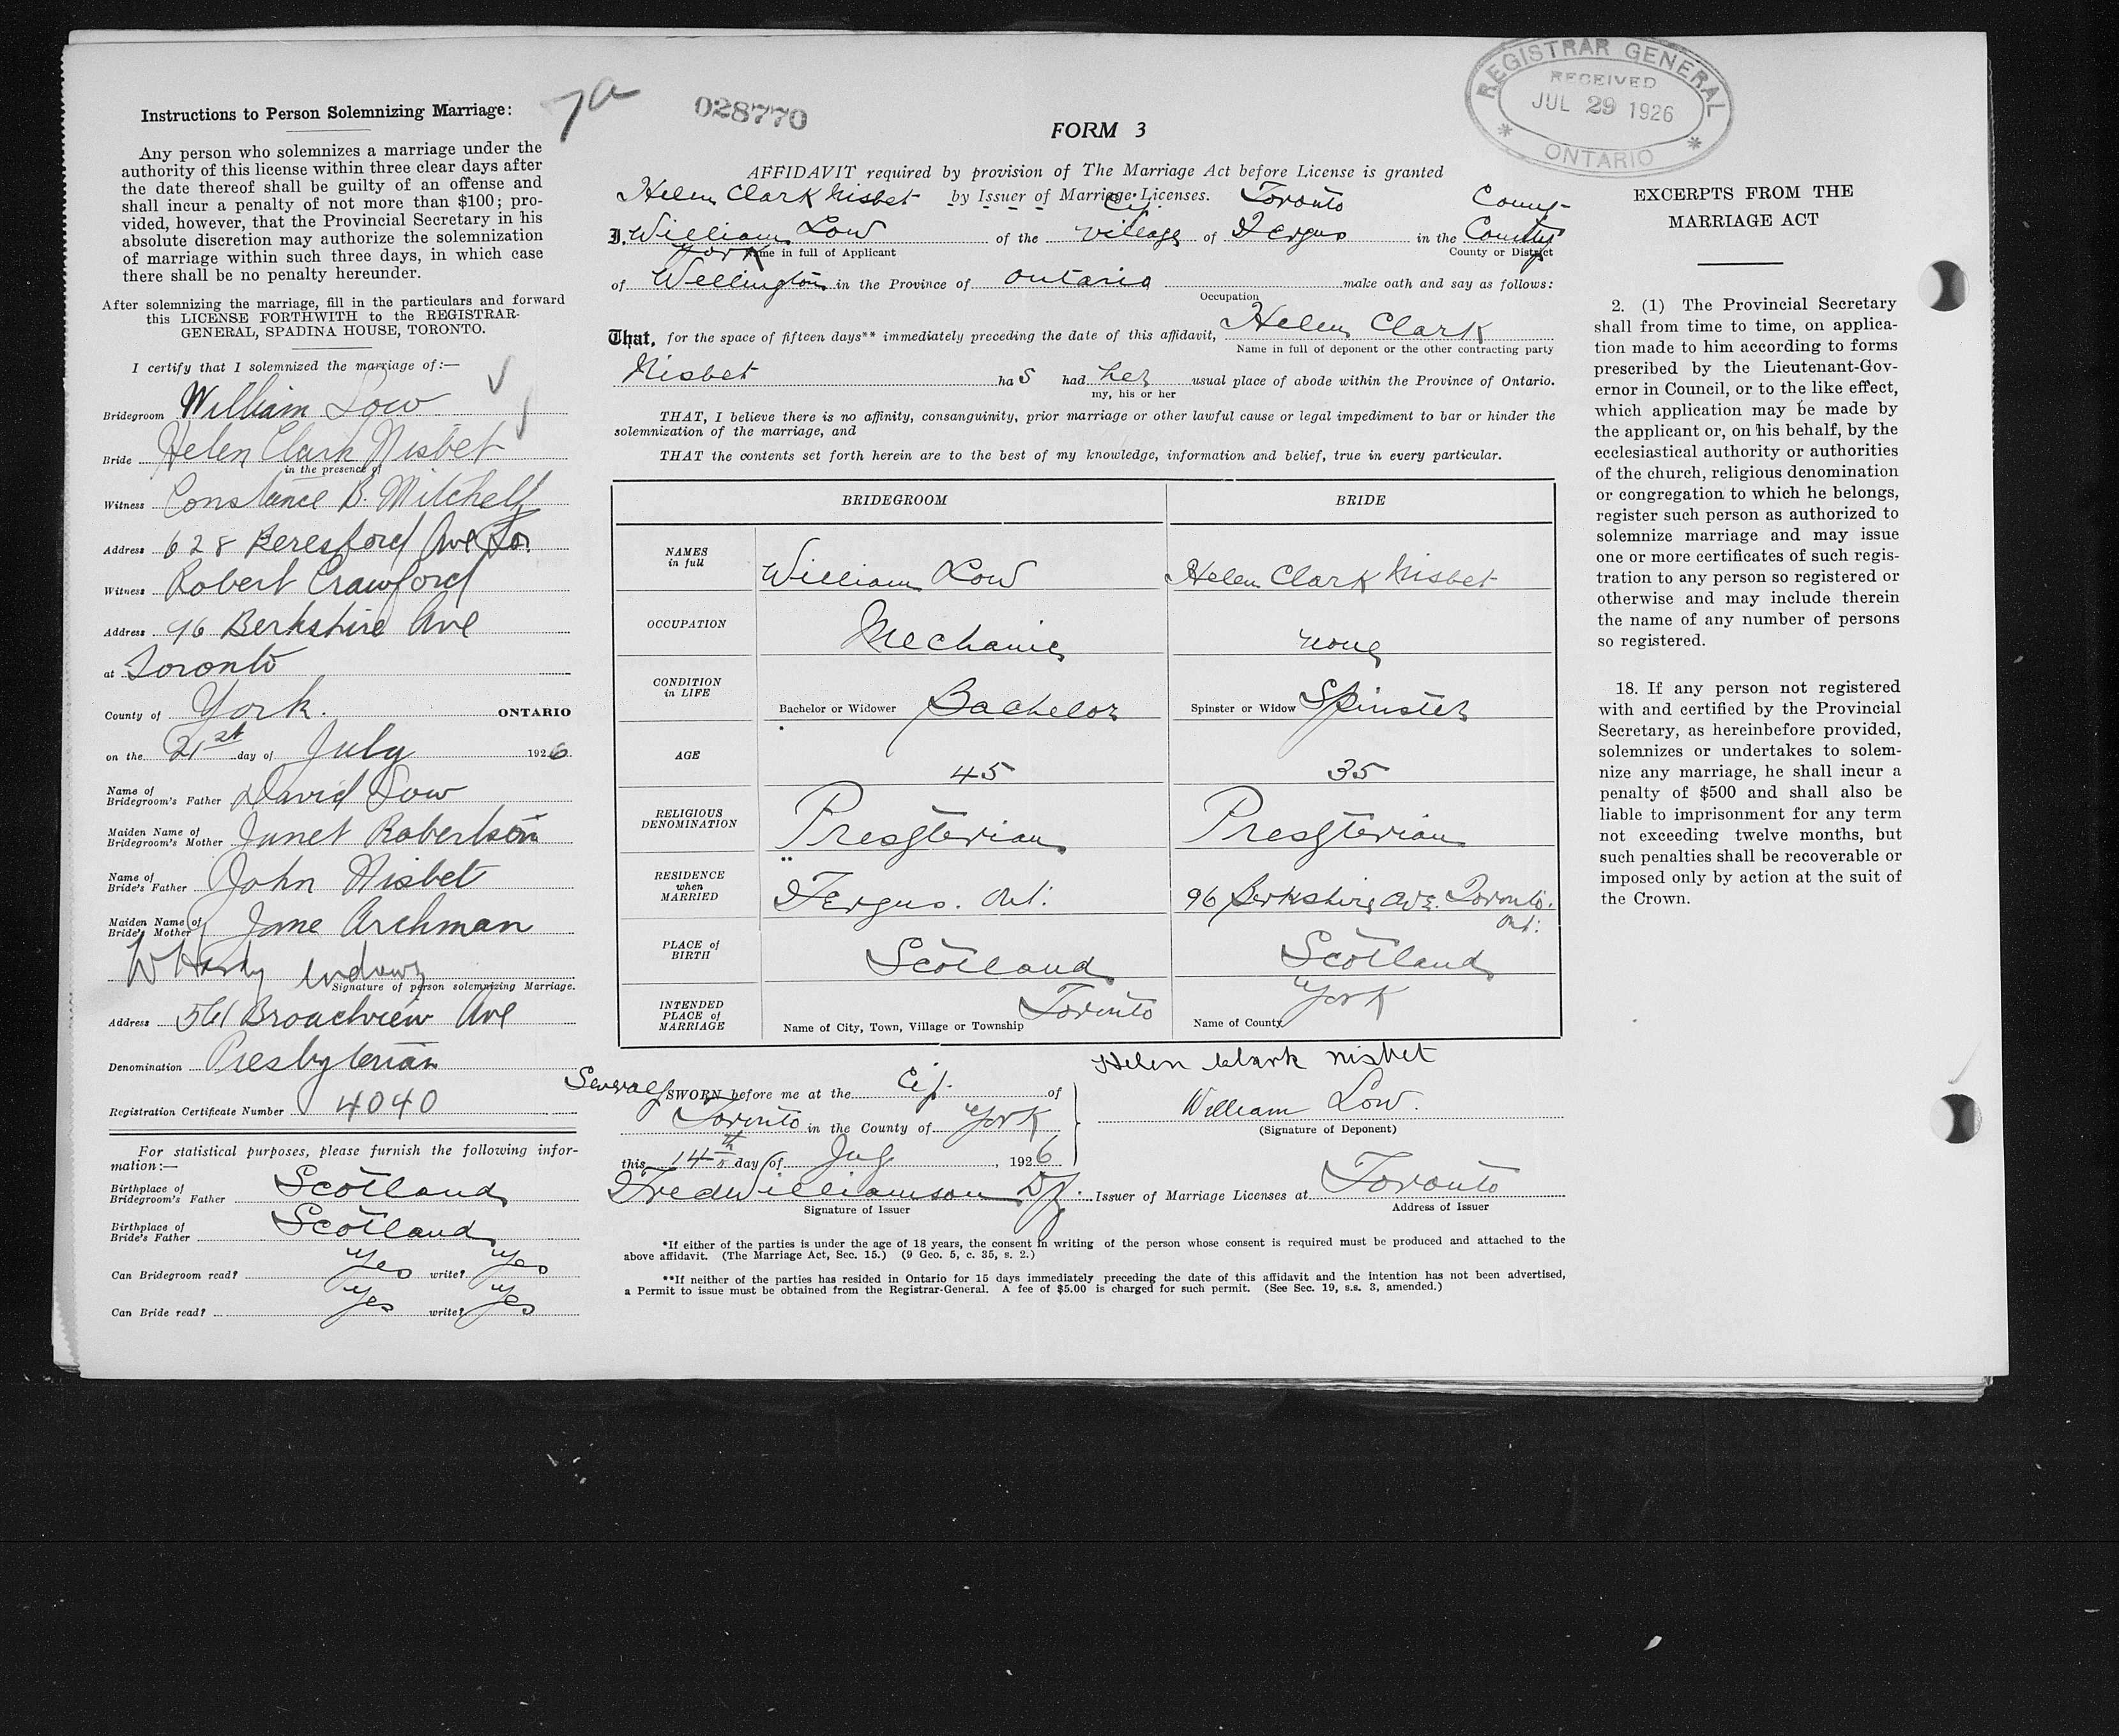 Instructions to Person Solemnizing Marriage:
Any person who solemnizes a marriage under the
authority of this license within three clear days after
the date thereof shall be guilty of an offense and
shall incur a penalty of not more than $100; pro-
vided, however, that the Provincial Secretary in his
absolute discretion may authorize the solemnization
of marriage within such three days, in which case
there shall be no penalty hereunder.
After solemnizing the marriage, fill in the particulars and forward
this LICENSE FORTHWITH to the REGISTRAR-
GENERAL, SPADINA HOUSE, TORONTO.
I certify that I solemnized the marriage of:—
Bridegroom William Low
Bride Helen Clark Nisbet
in the presence of
Witness Constance B. Mitchell
Address 628 Beresford Ave To.
Witness Robert Crawford
Address 96 Berkshire Ave
at Toronto
County of York. ONTARIO
on the 21st day of July 1926
Name of
Bridegroom's Father David Low
Maiden Name of
Bridegroom's Mother Janet Robertson
Name of
Bride's Father John Nisbet
Maiden Name of
Bride's Mother Jane Archman
W Hardy Andrews
Signature of person solemnizing Marriage.
Address 561 Broadview Ave
Denomination Presbyterian
Registration Certificate Number 4040
For statistical purposes, please furnish the following infor-
mation:—
Birthplace of
Bridegroom's Father Scotland
Birthplace of
Bride's Father Scotland
Can Bridegroom read? Yes write? Yes
Can Bride read? Yes write? Yes
7a 028770
FORM 3
REGISTRAR GENERAL
RECEIVED
JUL 29 1926
ONTARIO
AFFIDAVIT required by provision of The Marriage Act before License is granted
by Issuer of Marriage Licenses.
Helen Clark Nisbet City Toronto County
I, William Low of the village of Fergus in the County
York Name in full of Applicant County or District
of Wellington in the Province of Ontario make oath and say as follows:
Occupation
That, for the space of fifteen days** immediately preceding the date of this affidavit, Helen Clark
Name in full of deponent or the other contracting party
Nisbet has had her usual place of abode within the Province of Ontario.
my, his or her
THAT, I believe there is no affinity, consanguinity, prior marriage or other lawful cause or legal impediment to bar or hinder the
solemnization of the marriage, and
THAT the contents set forth herein are to the best of my knowledge, information and belief, true in every particular.
BRIDEGROOM BRIDE
NAMES
in full William Low Helen Clark Nisbet
OCCUPATION Mechanic none
CONDITION
in LIFE Bachelor or Widower Bachelor Spinster or Widow Spinster
AGE 45 35
RELIGIOUS
DENOMINATION Presyterian Presyterian
RESIDENCE
when
MARRIED Fergus. Ont. 96 Berkshire Ave. Toronto.
Ont.
PLACE of
BIRTH Scotland Scotland
INTENDED
PLACE of
MARRIAGE Name of City, Town, Village or Township Toronto Name of County York
Helen Clark Nisbet
Severaly SWORN before me at the City of
Toronto in the County of York
this 14th day of July, 1926
William Low.
(Signature of Deponent)
Fred Williamson Issuer of Marriage Licenses at Toronto
Signature of Issuer Address of Issuer
*If either of the parties is under the age of 18 years, the consent in writing of the person whose consent is required must be produced and attached to the
above affidavit. (The Marriage Act, Sec. 15.) (9 Geo. 5, c. 35, s. 2.)
**If neither of the parties has resided in Ontario for 15 days immediately preceding the date of this affidavit and the intention has not been advertised,
a Permit to issue must be obtained from the Registrar-General. A fee of $5.00 is charged for such permit. (See Sec. 19, s.s. 3, amended.)
EXCERPTS FROM THE
MARRIAGE ACT
2. (1) The Provincial Secretary
shall from time to time, on applica-
tion made to him according to forms
prescribed by the Lieutenant-Gov-
ernor in Council, or to the like effect,
which application may be made by
the applicant or, on his behalf, by the
ecclesiastical authority or authorities
of the church, religious denomination
or congregation to which he belongs,
register such person as authorized to
solemnize marriage and may issue
one or more certificates of such regis-
tration to any person so registered or
otherwise and may include therein
the name of any number of persons
so registered.
18. If any person not registered
with and certified by the Provincial
Secretary, as hereinbefore provided,
solemnizes or undertakes to solem-
nize any marriage, he shall incur a
penalty of $500 and shall also be
liable to imprisonment for any term
not exceeding twelve months, but
such penalties shall be recoverable or
imposed only by action at the suit of
the Crown.